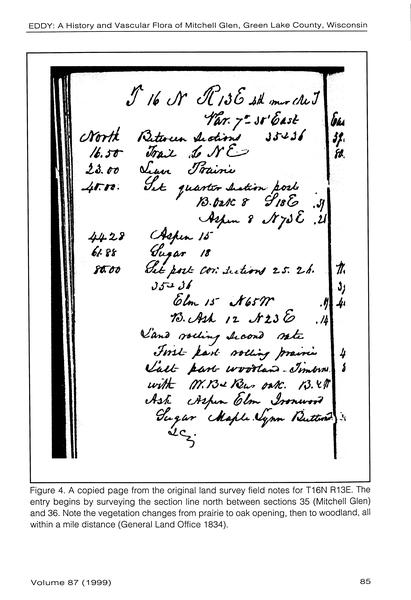 EDDY: A History and Vascular Flora of Mitchell Glen, Green Lake County, Wisconsin
T 16 N R 13 E 4th mer
Var. 7° 30' East
North Between Sections 35 & 36
16.50 Trail to N E
23.00 Prairie
40.00. Set quarter section post
B. oak 8 S 18 E
Aspen 8 N 73 E
44.28 Aspen 15
61.88 Sugar 18
80.00 Set post cor. sections 25. 26.
35 & 36
Elm 15 N 65 W
B. Ash 12 N 23 E .14
Land rolling second rate
First part rolling prairie 4
Last part woodland - Timber
with W. B & Bur oak. B. & W
Ash Aspen Elm Ironwood
Sugar Maple Lynn
&c;
Figure 4. A copied page from the original land survey field notes for T16N R13E. The
entry begins by surveying the section line north between sections 35 (Mitchell Glen)
and 36. Note the vegetation changes from prairie to oak opening, then to woodland, all
within a mile distance (General Land Office 1834).
Volume 87 (1999) 85